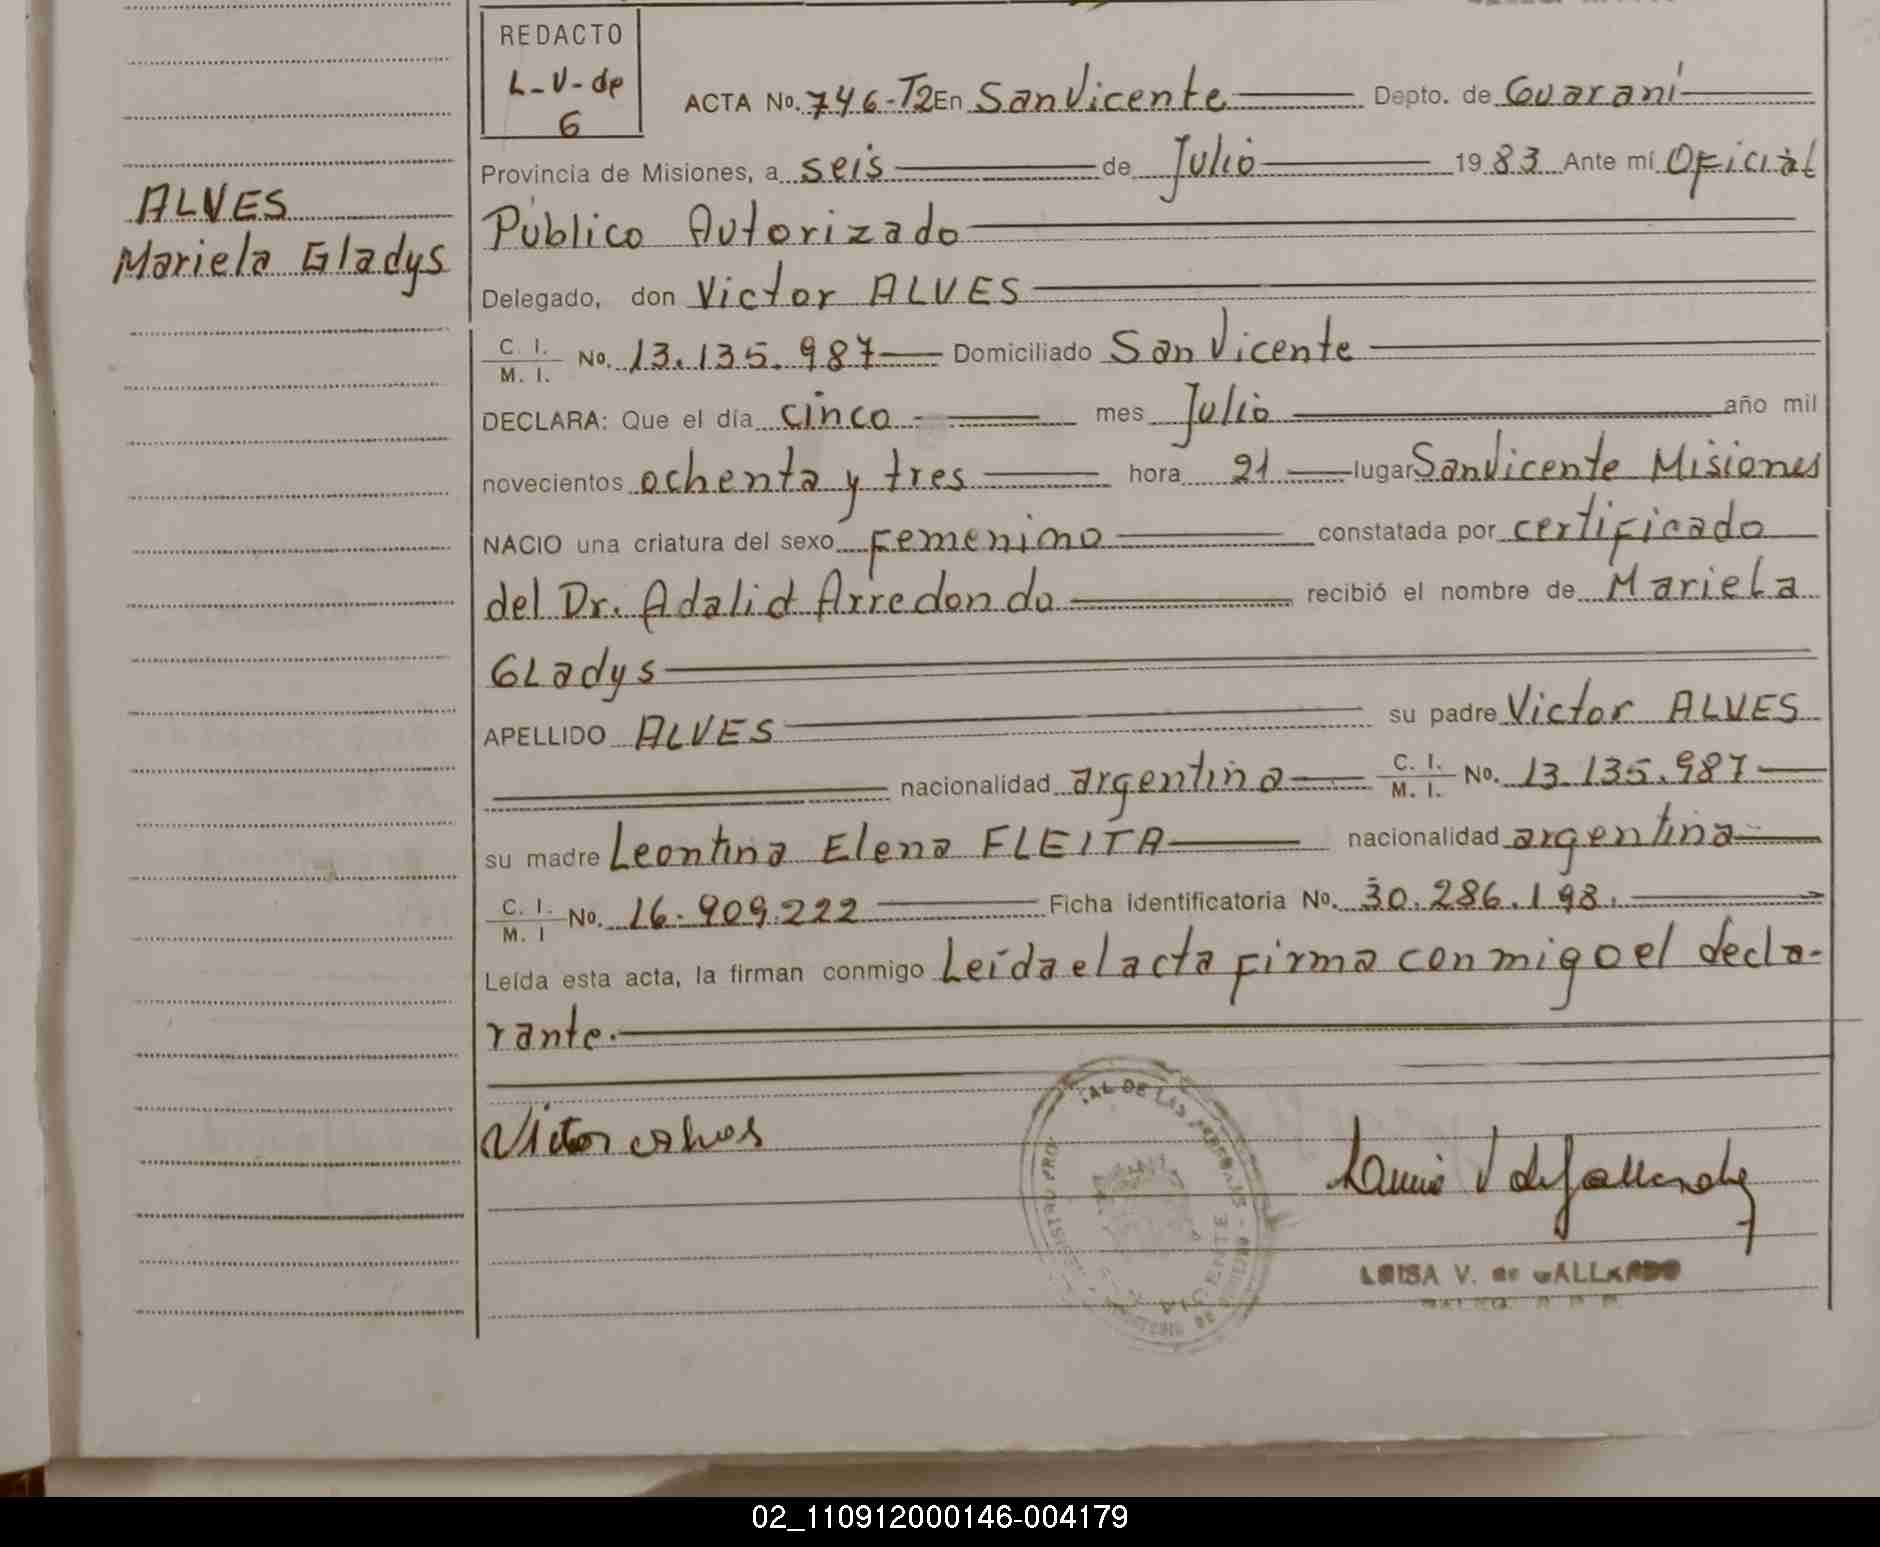 REDACTO
L-V-de
G
ACTA No. 746-T2 En San Vicente Depto. de Guaraní
Provincia de Misiones, a seis de Julio 1983 Ante mí Oficial
Público Autorizado
ALVES
Mariela Gladys
Delegado, don Victor ALVES
C. I.
M. I. No. 13.135.987 Domiciliado San Vicente
DECLARA: Que el día cinco mes Julio año mil
novecientos ochenta y tres hora 21 lugar San Vicente Misiones
NACIO una criatura del sexo Femenino constatada por certificado
del Dr. Adalid Arredondo recibió el nombre de Mariela
Gladys
APELLIDO ALVES su padre Victor ALVES
nacionalidad argentina C. I. M. I. No. 13.135.987
su madre Leontina Elena FLEITA nacionalidad argentina
C. I. M. I No. 16.909.222 Ficha identificatoria No. 30.286.198.
Leída esta acta, la firman conmigo Leída el acta firma conmigo el decla-
rante.
Victor alves
AL DE LAS PERSONAS
LUISA V. de GALLARDO
02_110912000146-004179